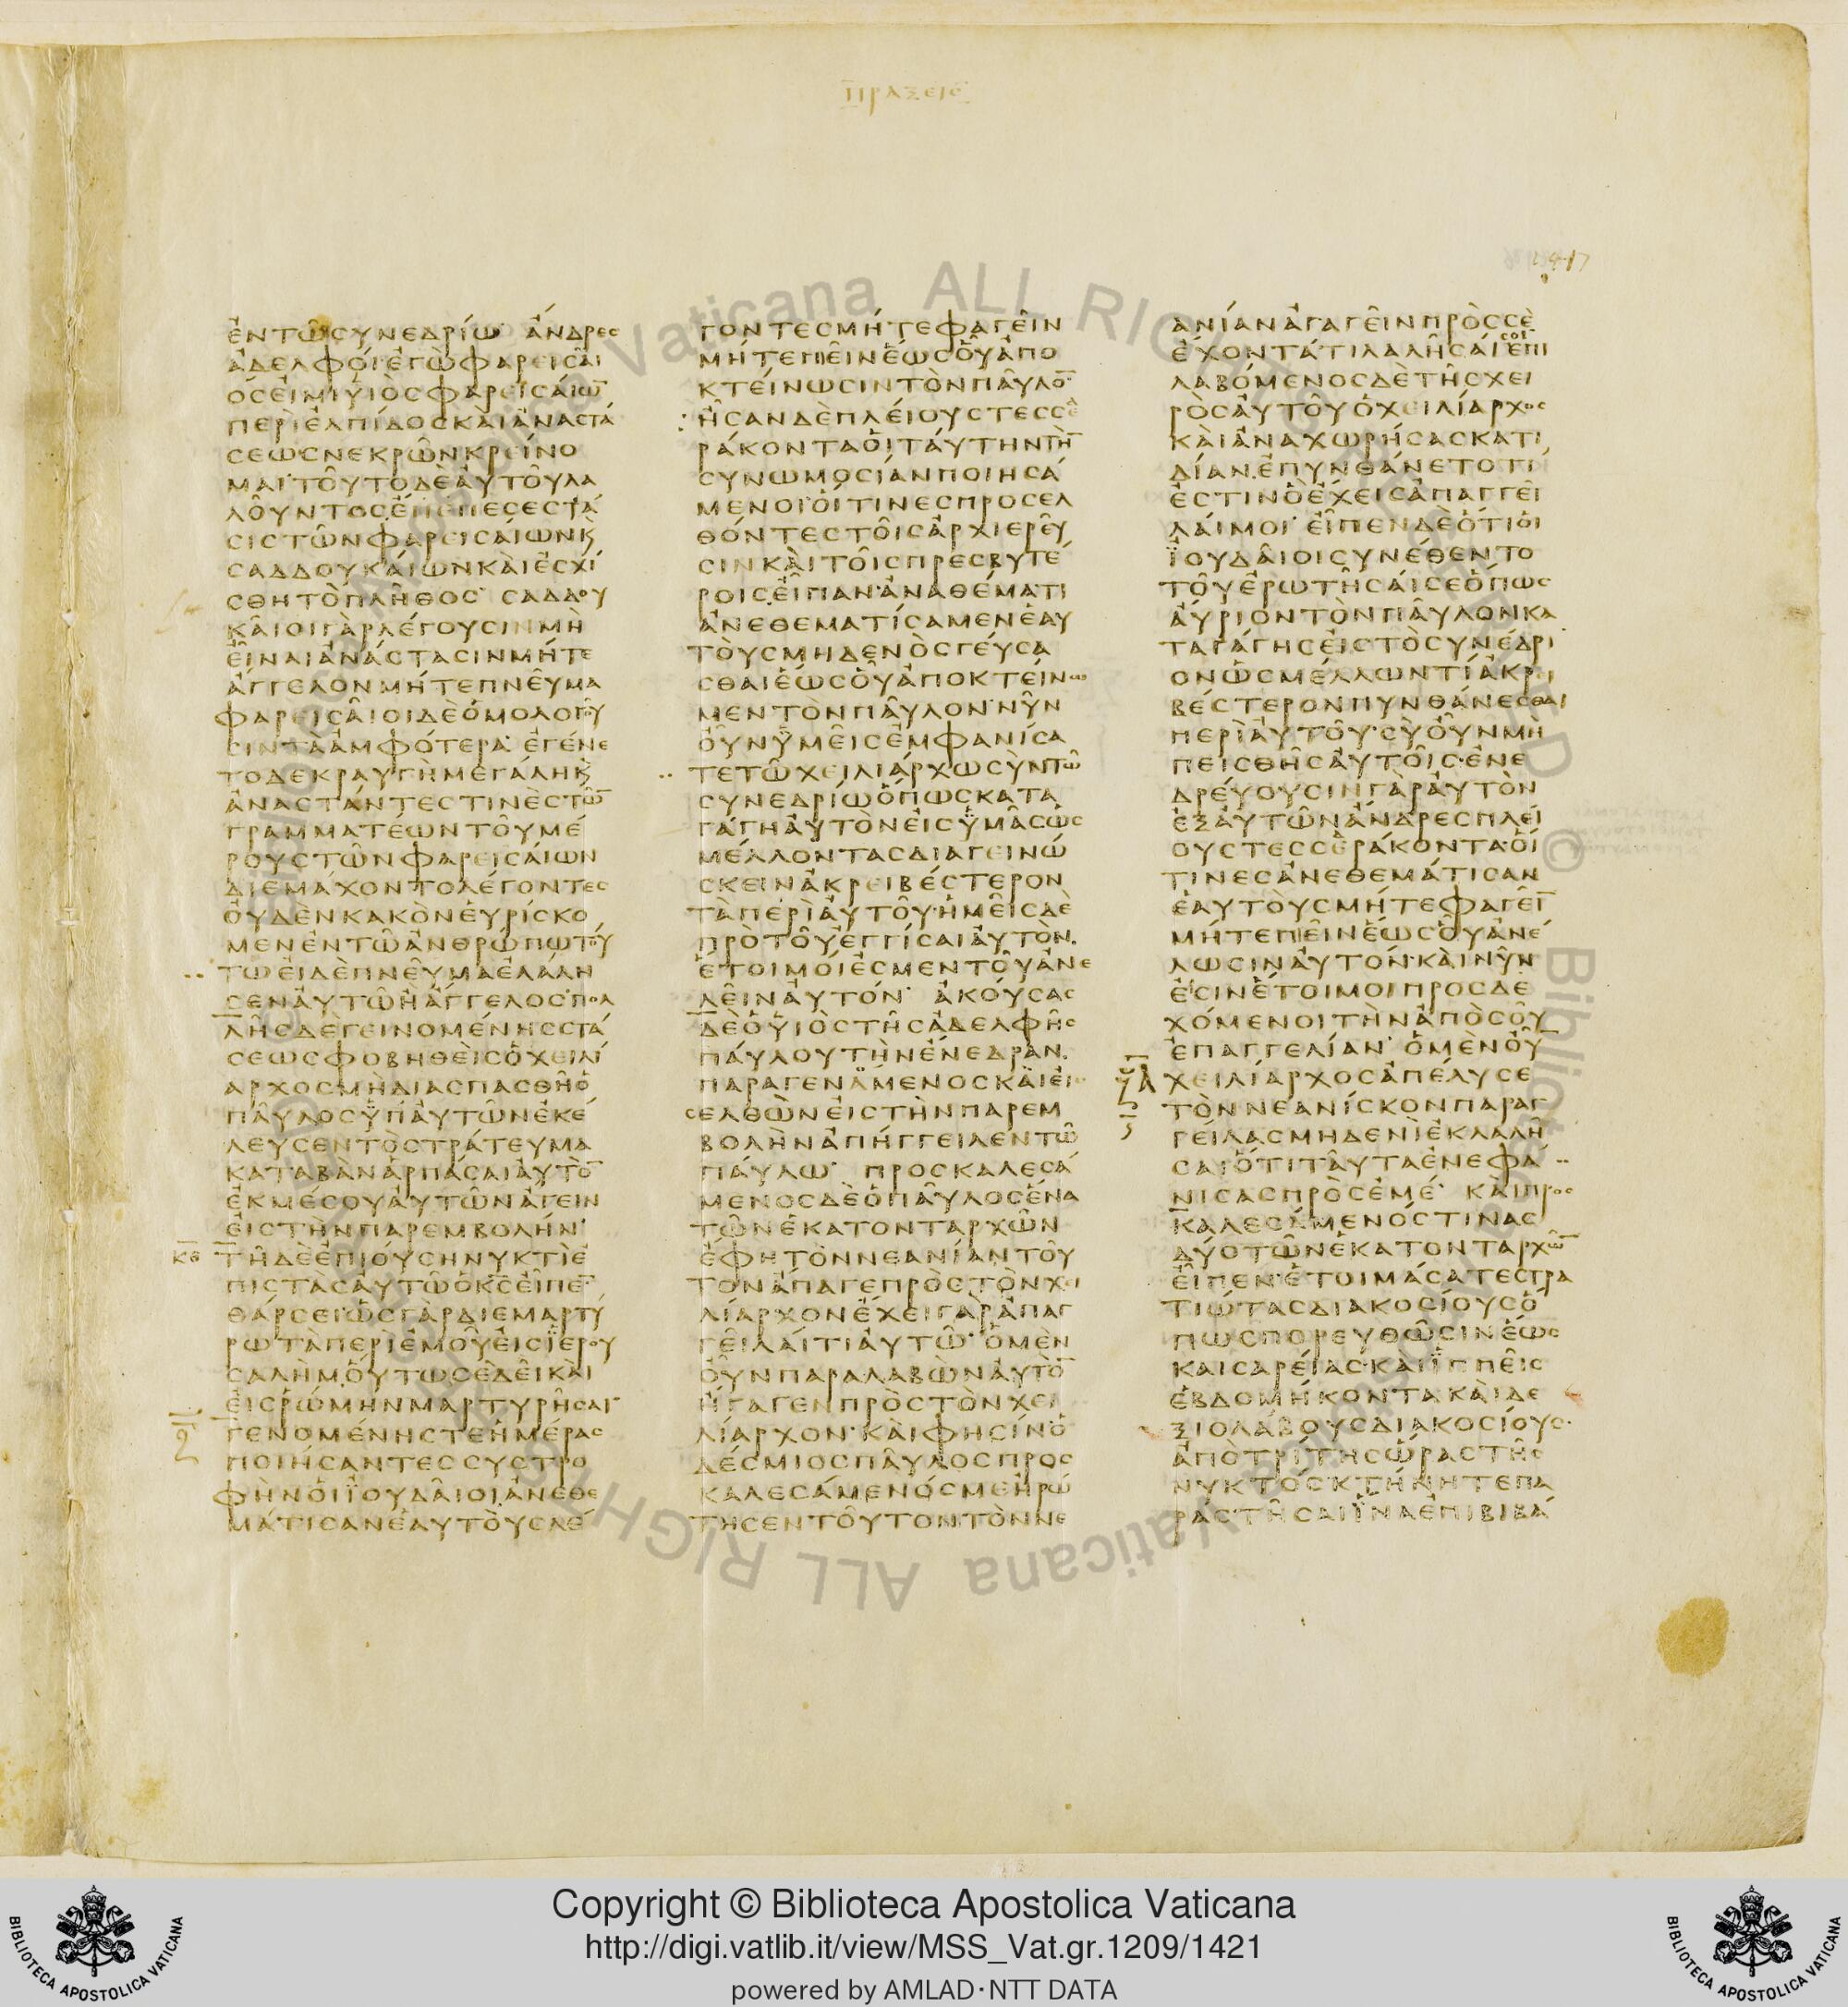 ΠΡΑΞΕΙϹ
ἐντῶϲυνεδρίω· ἄνδρεϲ
ἀδελφόι·ἐγὼφαρειϲᾶι
όϲἐιμιὑιὸϲφαρειϲάιω̅
περὶἐλπίδοϲκαὶἀναϲτά
ϲεωϲνεκρῶνκρείνο
μαι·τοῦτοδὲἀυτοῦλα
λοῦντοϲἐπέπεϲεϲτά
ϲιϲτῶνφαρειϲάιωνκ̀
ϲαδδουκάιωνκαὶἐϲχί
ϲθητὸπλῆθοϲ· ϲαδδου
κᾶιοιγὰρλέγουϲινμὴ
εἶναιἀνάϲταϲινμήτε
ἄγγελονμήτεπνεῦμα
φαρειϲᾶιοιδὲὁμολογοῦ
ϲιντὰἀμφότερα· ἐγένε
τοδεκραυγὴμεγάληκ̀
ἀναϲτάντεϲτινὲϲτῶ̅
γραμματέωντοῦμέ
ρουϲτῶνφαρειϲάιων
διεμάχοντολέγοντεϲ
ὀυδὲνκακὸνἑυρίϲκο
μενἐντῶἀνθρώπωτού
τωἐιδὲπνεῦμαἐλάλη
ϲενἀυτῶἢἄγγελοϲ·πολ
λῆϲδὲγεινομένηϲϲτά
ϲεωϲφοβηθεὶϲὁχειλί
αρχοϲμὴδιαϲπαϲθῆὁ
παῦλοϲὑπἀυτῶνἐκέ
λευϲεντὸϲτράτευμα
καταβὰνἁρπάϲαιἀυτὸ̅
ἐκμέϲουἀυτῶνἄγειν
ἐιϲτὴνπαρεμβολήν·
τῆδὲἐπιούϲηνυκτὶἐ
πιϲτὰϲἀυτῶὁκ̅ϲ̅εἶπε̅·
θάρϲει·ὡϲγὰρδιεμαρτύ
ρωτὰπερὶἐμοῦἐιϲϊερου
ϲαλὴμὅυτωϲεδεῖκαὶ
ἐιϲῥώμηνμαρτυρῆϲαι·
γενομένηϲτεἡμέραϲ
ποιήϲαντεϲϲυϲτρο
φὴνὁιϊουδᾶιοιἀνεθε
μάτιϲανἑαυτοὺϲλέ
γοντεϲμήτεφαγεῖν
μήτεπιεῖνἕωϲοὗἀπο
κτείνωϲιντὸνπαῦλο̅·
ἦϲανδὲπλείουϲτεϲϲε
ράκονταὁιτάυτηντὴ̅
ϲυνωμοϲίανποιηϲά
μενοι·ὅιτινεϲπροϲελ
θόντεϲτοῖϲἀρχιερεῦ
ϲινκαὶτοῖϲπρεϲβυτέ
ροιϲεἶπαν·ἀναθέματι
ἀνεθεματίϲαμενἑαυ
τοὺϲμηδενὸϲγεύϲα
ϲθαιἕωϲοὗἀποκτείνω
μεντὸνπαῦλον·νῦν
οὖνὑμεῖϲἐμφανίϲα
τετῶχειλιάρχωϲὺντῶ
ϲυνεδρίωὅπωϲκατα
γάγηἀυτὸνἐιϲὑμᾶϲὡϲ
μέλλονταϲδιαγεινώ
ϲκεινἀκρειβέϲτερον
τὰπερὶἀυτοῦ·ἡμεῖϲδὲ
πρὸτοῦἐγγίϲαιἀυτὸν
ἕτοιμόιἐϲμεντοῦἀνε
λεῖνἀυτόν· ἀκούϲαϲ
δὲὁὑιὸϲτῆϲἀδελφῆϲ
πάυλουτὴνἐνέδραν
παραγενάμενοϲκαὶἐι
ϲελθὼνἐιϲτὴνπαρεμ
βολὴνἀπήγγειλεντῶ
πάυλω· προϲκαλεϲά
μενοϲδὲὁπαῦλοϲἕνα
τῶνἑκατονταρχῶν
ἔφητὸννεανίαντοῦ
τονἄπαγεπρὸϲτὸνχι
λίαρχονἔχειγὰρἀπαγ
γεῖλάιτιἀυτῶ· ὁμὲν
οὖνπαραλαβὼνἀυτὸ̅
ἤγαγενπρὸϲτὸνχει
λίαρχον·καὶφηϲίνὁ
δέϲμιοϲπαῦλοϲπροϲ
καλεϲάμενόϲμεἠρώ
τηϲεντοῦτοντὸννε
ανίανἀγαγεῖνπρὸϲϲὲ
ἔχοντάτιλαλῆϲάιϲοι·ἐπι
λαβόμενοϲδὲτῆϲχει
ρὸϲἀυτοῦὁχειλίαρχοϲ
καὶἀναχωρήϲαϲκατι
δίαν.ἐπυνθάνετοτί
ἐϲτινὃἔχειϲἀπαγγεῖ
λάιμοι· εἶπενδὲὅτιὁι
ϊουδᾶιοιϲυνέθεντο
τοῦἐρωτῆϲάιϲεὅπωϲ
ἄυριοντὸνπαῦλονκα
ταγάγηϲἐιϲτὸϲυνέδρι
ονὡϲμέλλωντὶἀκρι
βέϲτερονπυνθάνεϲθαι
περὶἀυτοῦ·ϲὺοὖνμὴ
πειϲθῆϲἀυτοῖϲ·ἐνε
δρέυουϲινγὰρἀυτὸν
ἐξἀυτῶνἄνδρεϲπλεί
ουϲτεϲϲεράκοντα·ὅι
τινεϲἀνεθεμάτιϲαν
ἑαυτοὺϲμήτεφαγεῖ̅
μήτεπιεῖνἕωϲοὗἀνέ
λωϲινἀυτόν·καὶνῦν
ἐιϲὶνἕτοιμοιπροϲδε
χόμενοιτὴνἀπὸϲοῦ
ἐπαγγελίαν· ὁμὲνοὖ̅
χειλίαρχοϲἀπέλυϲε
τὸννεανίϲκονπαραγ
γείλαϲμηδενὶἐκλαλῆ
ϲαιὅτιταῦταἐνεφά
νιϲαϲπρὸϲἐμέ· καὶπροϲ
καλεϲάμενόϲτιναϲ
δύοτῶνἑκατονταρχῶ̅
εἶπεν·ἑτοιμάϲατεϲτρα
τιώταϲδιακοϲίουϲὅ
πωϲπορευθῶϲινἕωϲ
καιϲαρείαϲ·καὶἱππεῖϲ
ἑβδομήκοντακαὶδε
ξιολάβουϲδιακοϲίουϲ·
ἀπὸτρίτηϲὥραϲτῆϲ
νυκτόϲ·κτήνητεπα
ραϲτῆϲαιἵναἐπιβιβά
Copyright © Biblioteca Apostolica Vaticana
http://digi.vatlib.it/view/MSS_Vat.gr.1209/1421
powered by AMLAD·NTT DATA
BIBLIOTECA APOSTOLICA VATICANA
BIBLIOTECA APOSTOLICA VATICANA